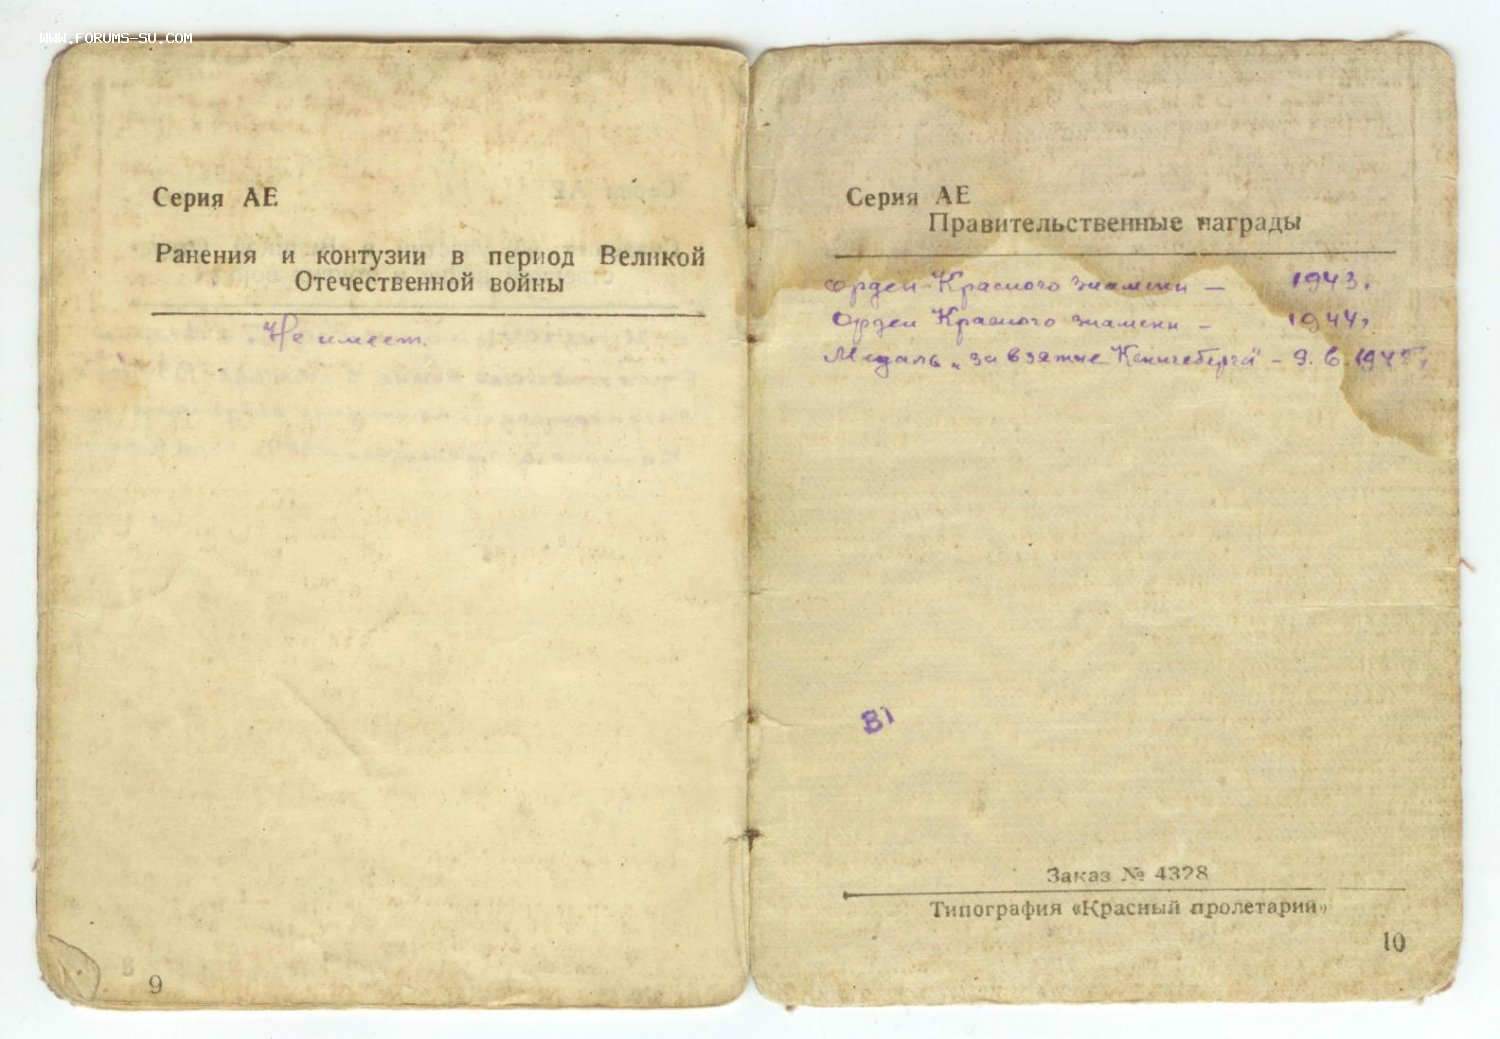 WWW.FORUMS-SU.COM
Серия АЕ
Ранения и контузии в период Великой
Отечественной войны
Не имеет.
9
Серия АЕ
Правительственные награды
Орден Красного Знамени – 1943.
Орден Красного Знамени – 1944.
Медаль „за взятие Кенигсберга" – 9.6.1945.
Заказ № 4328
Типография «Красный пролетарий»
10